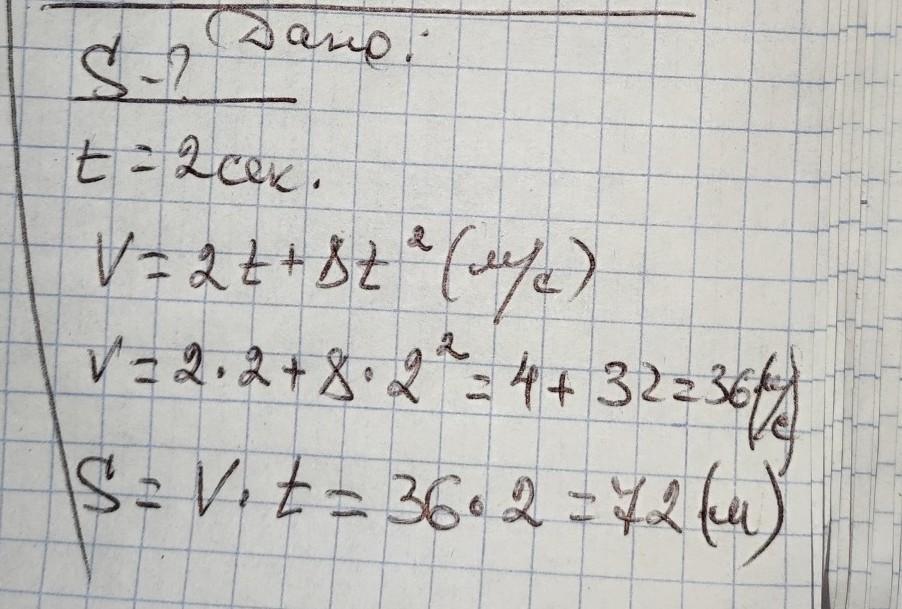 Дано:
S-?
t = 2 сек.
V = 2t + 8t² (м/с)
V = 2·2 + 8·2² = 4 + 32 = 36 (м/с)
S = V·t = 36·2 = 72 (м)